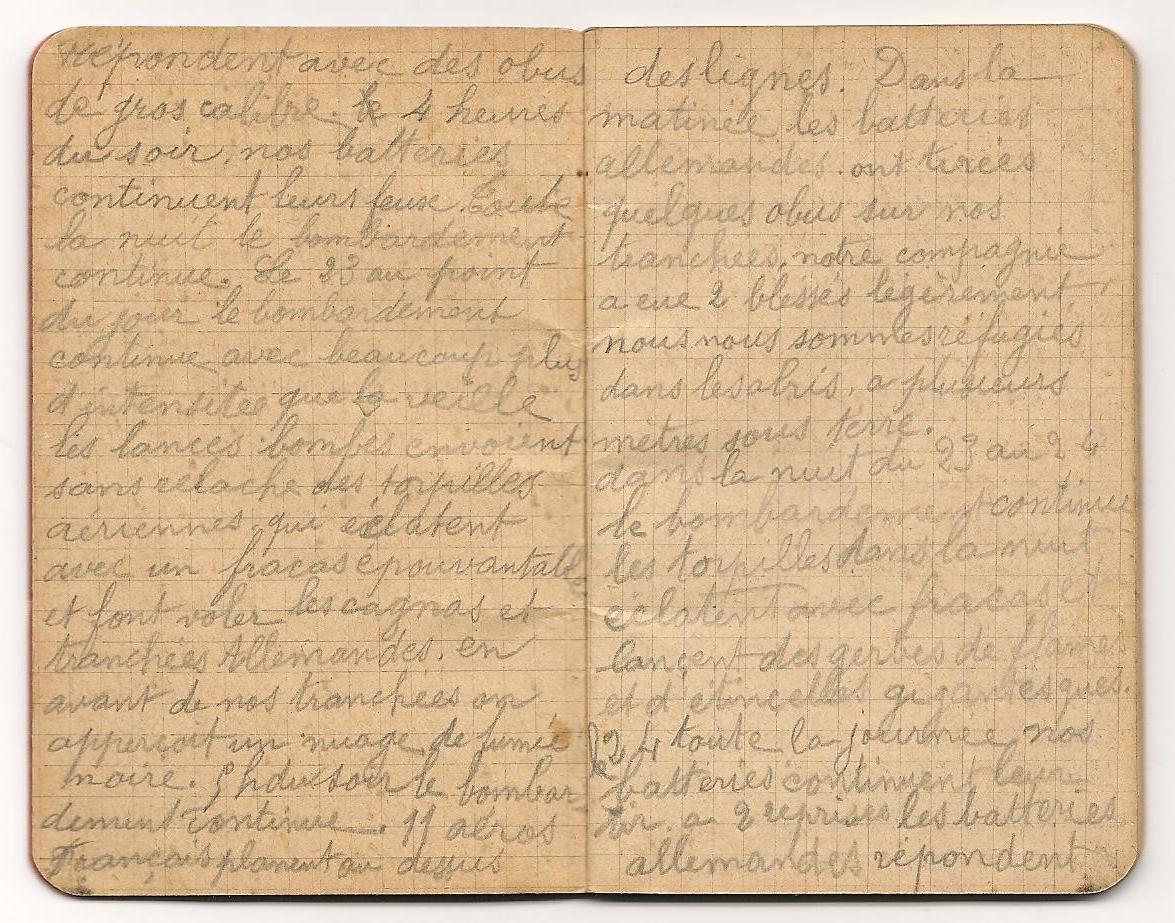 répondent avec des obus
de gros calibre. le 4 heures
du soir, nos batteries
continuent leurs feuse. Toute
la nuit le bombardement
continue. Le 23 au point
du jour le bombardement
continue avec beaucoup plus
d'intensitée que la veille
les lances bombes envoient
sans relache des torpilles
aériennes, qui éclatent
avec un fracas épouvantable
et font voler les cagnas et
tranchées Allemandes. en
avant de nos tranchées on
apperçoit un nuage de fumée
noire. 5h du soir le bombar
dement continue. 11 aéros
Français planent au dessus
des lignes. Dans la
matinée les batteries
allemandes. ont tirées
quelques obus sur nos
tranchées, notre compagnie
a eue 2 blessés légèrement,
nous nous sommes réfugiés
dans les abris, a plusieurs
mètres sous terre.
dans la nuit du 23 au 24
le bombardement continue
les torpilles dans la nuit
éclatent avec fracas et
lançent des gerbes de flames
et d'étincelles gigantesques.
le 24 toute la journée nos
batteries continuent leur
tir. a 2 reprises les batteries
allemandes répondent